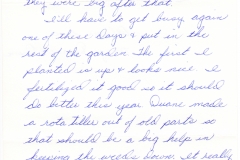 they were big after that.
I'll have to get busy again
one of these days & put in the
rest of the garden. The first I
planted is up & looks nice. I
fertilized it good so it should
do better this year. Duane made
a rota tiller out of old parts so
that should be a big help in
keeping the weeds down. It really